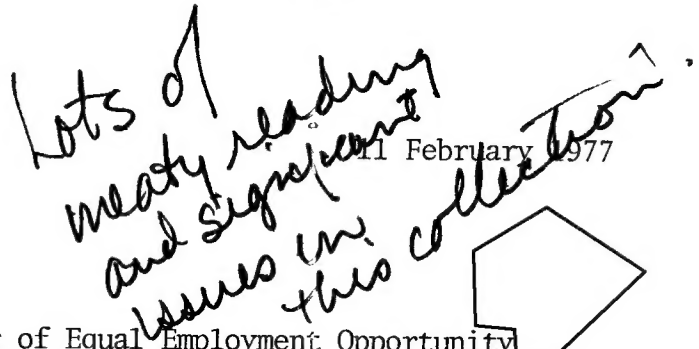 Lots of
meaty reading
and significant
issues in
this collection.
11 February 1977
of Equal Employment Opportunity